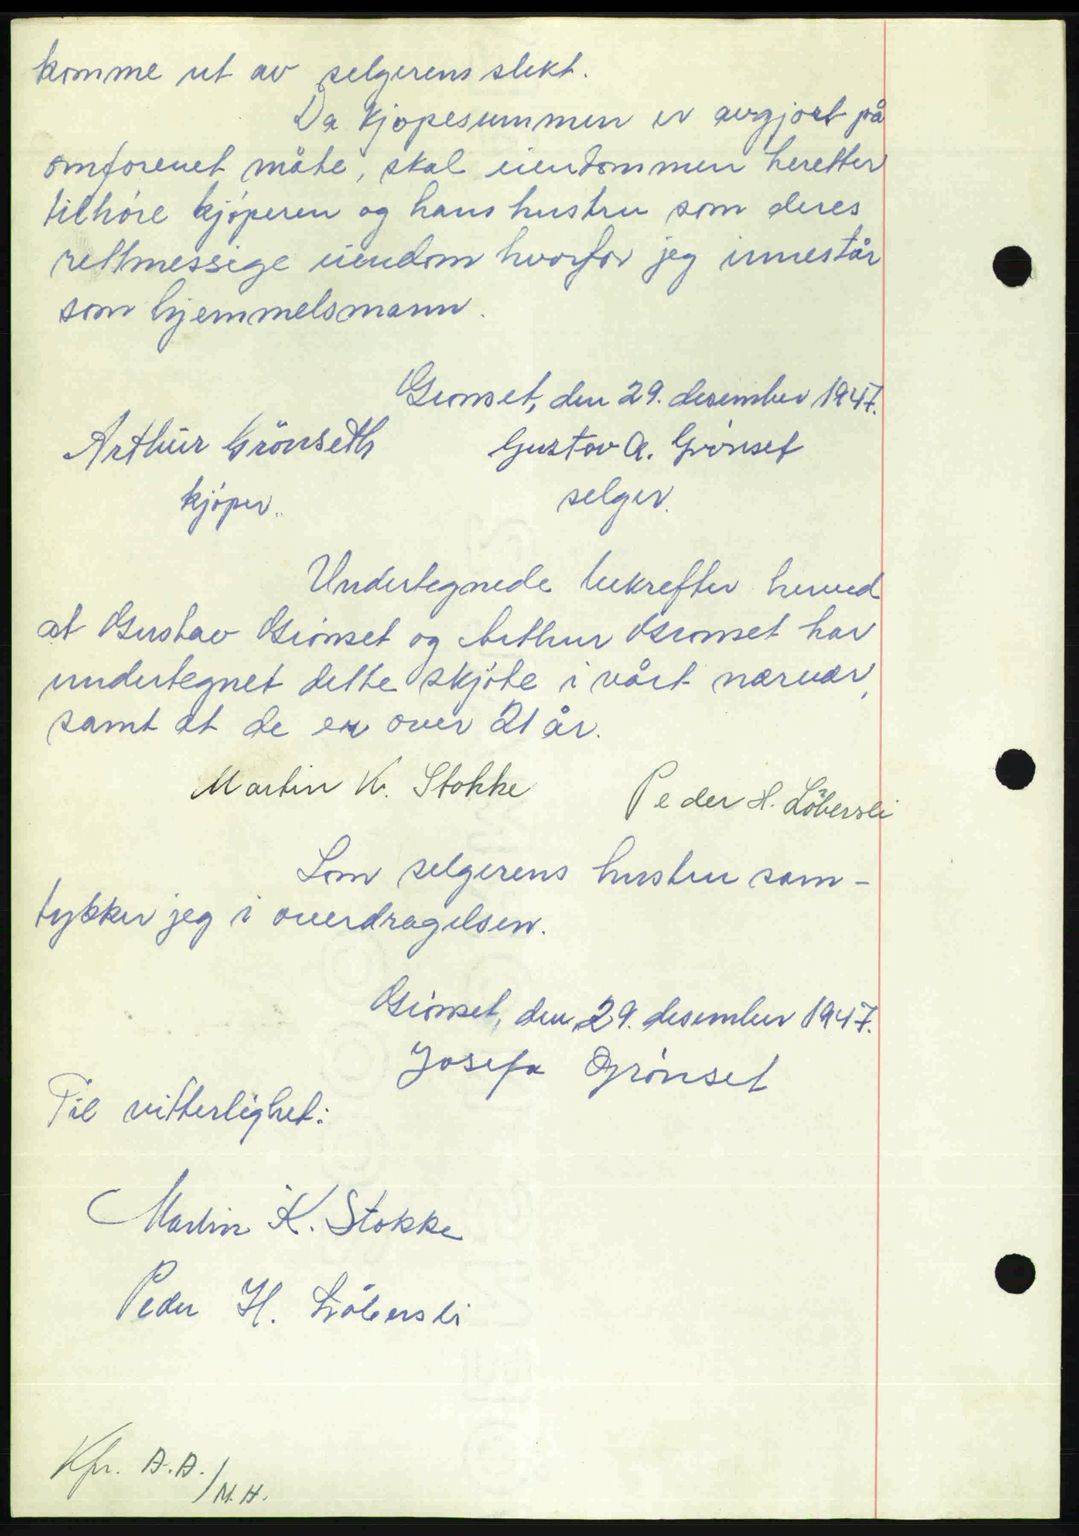 komme ut av selgerens slekt.
Da kjøpesummen er avgjort på
omforenet måte, skal eiendommen heretter
tilhøre kjøperen og hans hustru som deres
rettmessige eiendom hvorfor jeg innestår
som hjemmelsmann.
Grønset, den 29. desember 1947.
Arthur Grönseth Gustav A. Grønset
kjøper. selger.
Undertegnede bekrefter herved
at Gustav Grønset og Arthur Grønset har
undertegnet dette skjøte i vårt nærvær,
samt at de er over 21 år.
Martin K. Stokke Peder H. Löbersli
Som selgerens hustru sam-
tykker jeg i overdragelsen.
Grønset, den 29. desember 1947.
Josefa Grønset
Til vitterlighet:
Martin K. Stokke
Peder H. Löbersli
Kfr. A.A./M.H.